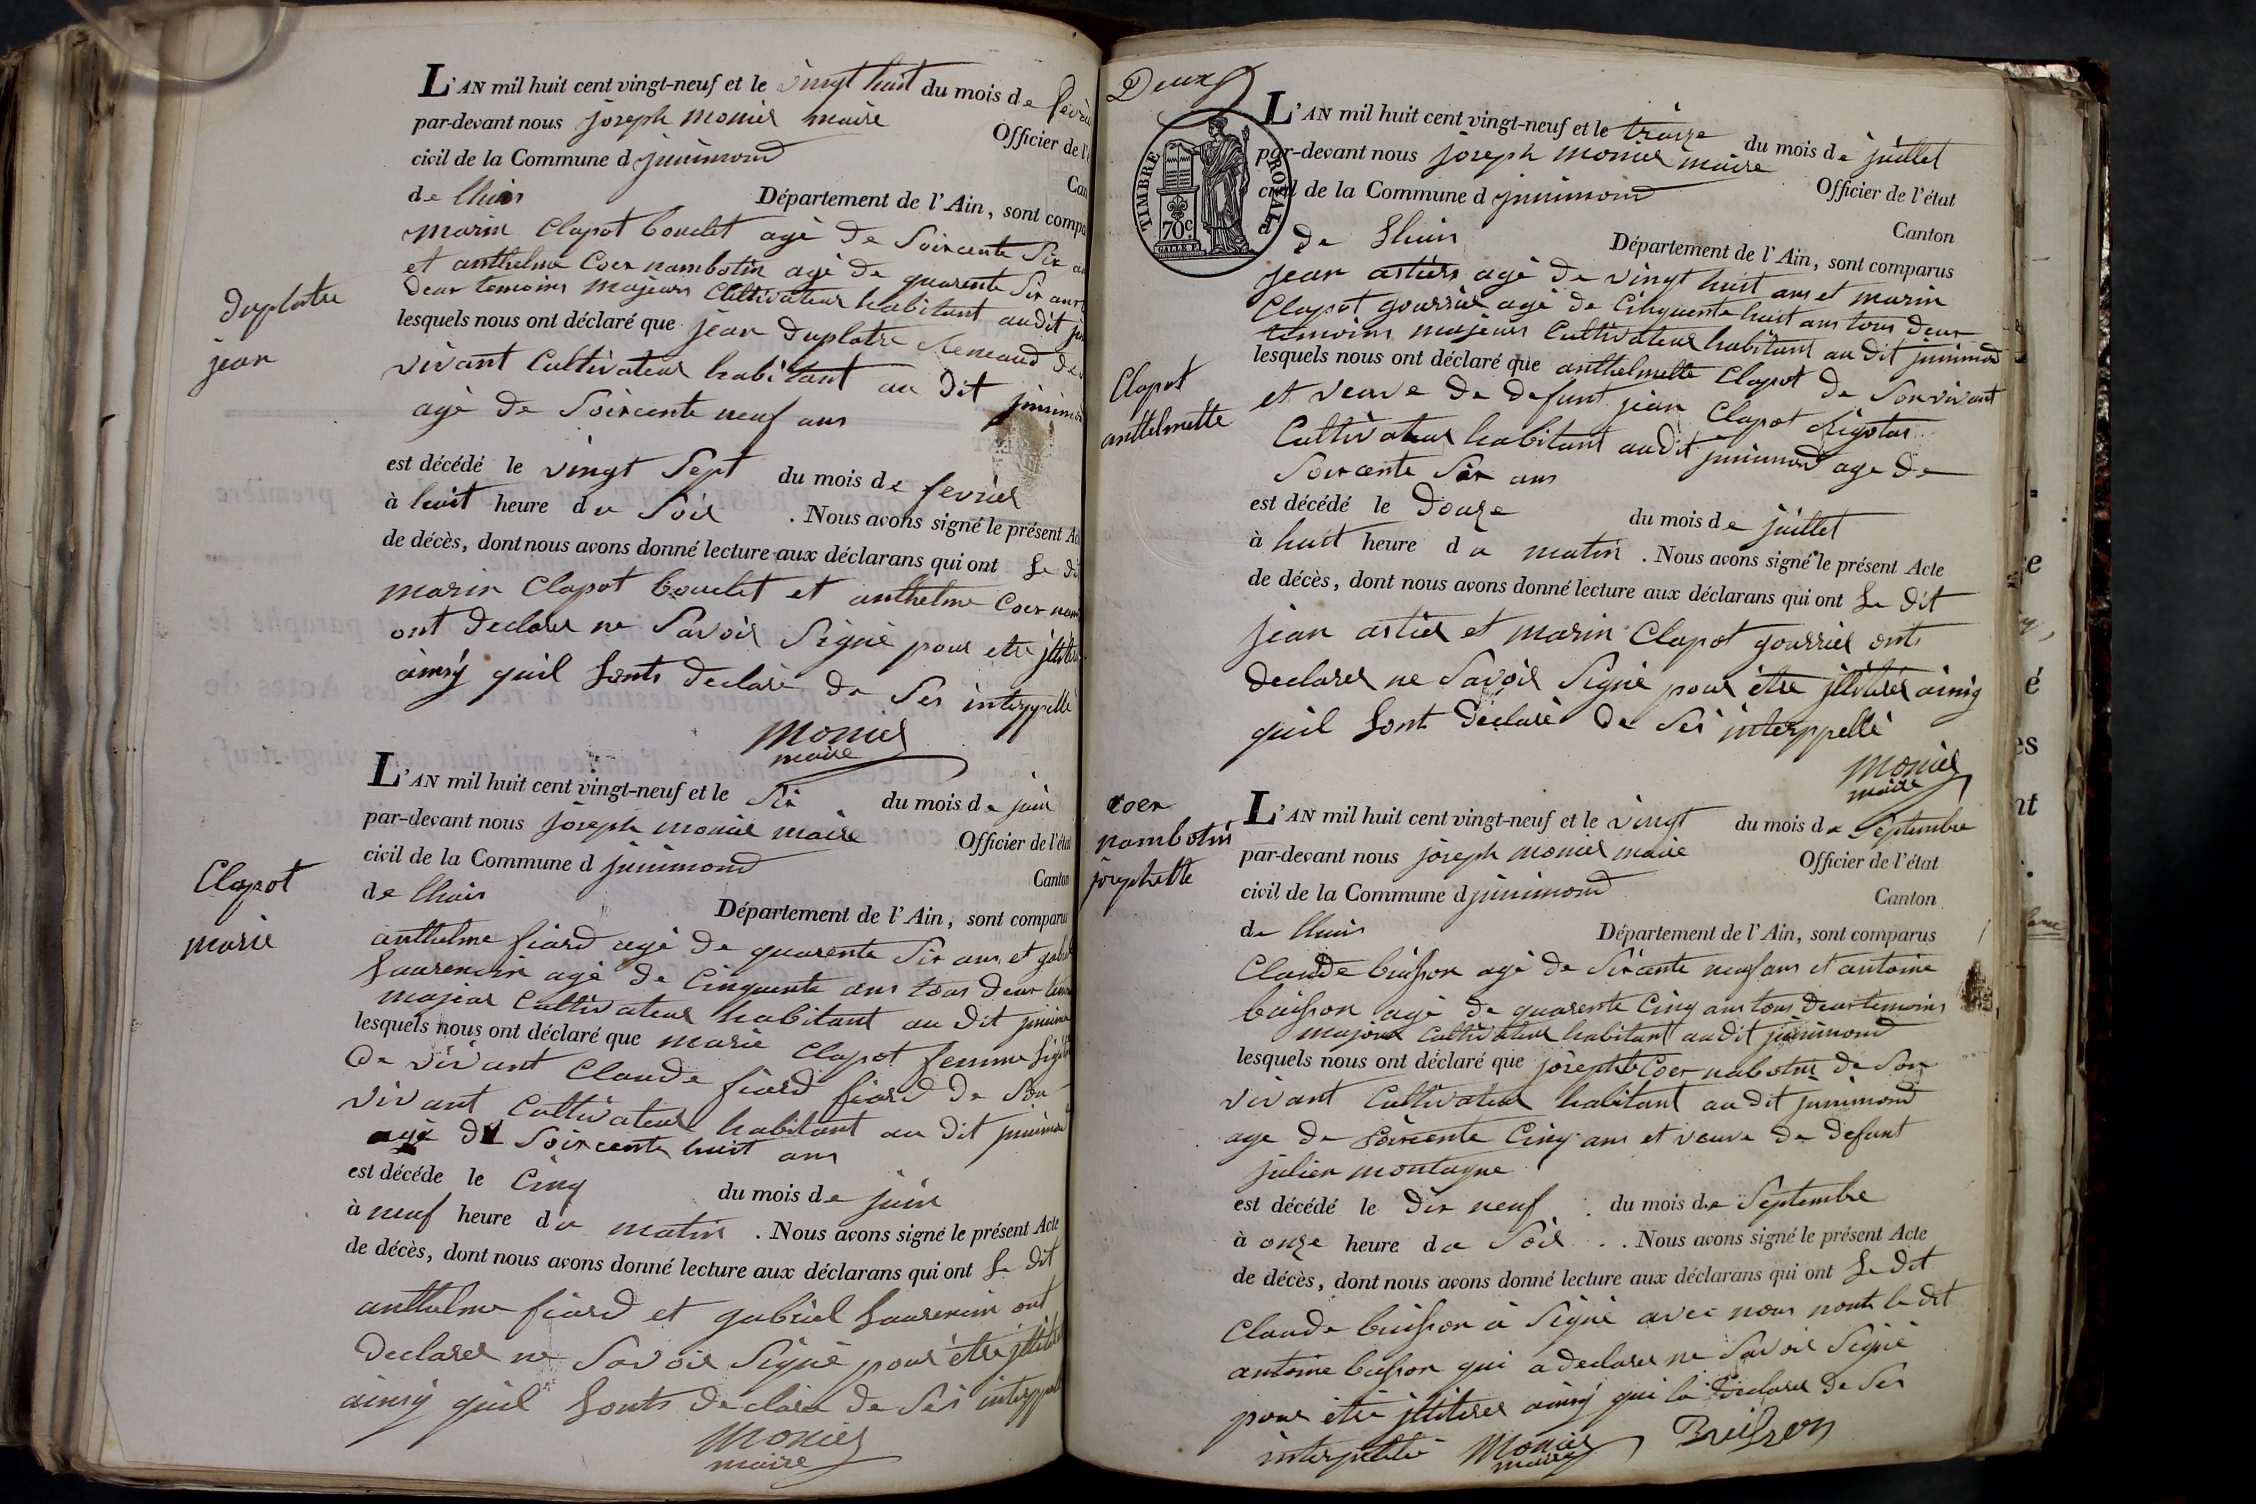 L'AN mil huit cent vingt-neuf et le vingt huit du mois de
par-devant nous joseph monier maire Officier de
civil de la Commune d jzinimond
de lhuis Département de l'Ain, sont
marin Clapot bouclet agé de Soixcente Six
et anthelme Coer nambotin agé de quarente Six ans
deux temoins majeurs Cultivateur habitant audit
lesquels nous ont déclaré que jean duplatre
vivant Cultivateur habitant au dit
agé de Soixcente neuf ans
est décédé le vingt Sept du mois de fevrier
à huit heure du Soir . Nous avons signé le présent
de décès, dont nous avons donné lecture aux déclarans qui ont Le
marin Clapot bouclet et anthelme Coer
ont declarer ne Savoir Signé pour etre
ainsy quil Lonts declaré de Ses interppellé
monier
maire
duplatre
jean
L'AN mil huit cent vingt-neuf et le Six du mois de juin
par-devant nous joseph monier maire Officier de l'état
civil de la Commune d jzinimond Canton
de lhuis Département de l'Ain, sont comparus
anthelme fiard agé de quarente Six ans et
Laurencin agé de Cinquente ans tous deux
majeur Cultivateur habitant au dit
lesquels nous ont déclaré que marie Clapot femme
de vivant Claude fiard fiard de Son
vivant Cultivateur habitant au dit
agé de Soixcente huit ans
est décédé le Cinq du mois de juin
à neuf heure du matin . Nous avons signé le présent Acte
de décès, dont nous avons donné lecture aux déclarans qui ont Le dit
anthelme fiard et gabriel Laurencin ont
declarer ne Savoir Signé pour être
ainsy quil Lonts declaré de Ses
monier
maire
Clapot
marie
Deux
TIMBRE ROYAL
70c.
L'AN mil huit cent vingt-neuf et le traize du mois de juillet
par-devant nous joseph monier maire Officier de l'état
civil de la Commune d jzinimond Canton
de Lhuis Département de l'Ain, sont comparus
jean astiers agé de vingt huit ans et marin
Clapot gourrier agé de Cinquente huit ans tous deux
temoins majeurs Cultivateur habitant au dit jzinimond
lesquels nous ont déclaré que anthelmette Clapot de Son vivant
et veuve de defunt jean Clapot
Cultivateur habitant audit jzinimond age de
Soixcente Six ans
est décédé le Douze du mois de juillet
à huit heure du matin . Nous avons signé le présent Acte
de décès, dont nous avons donné lecture aux déclarans qui ont Le dit
jean astier et marin Clapot gourrier onts
declarer ne Savoir Signé pour être jlitérer ainsy
quil Lont declaré de Ses interppellé
monier
maire
Clapot
anttelmette
L'AN mil huit cent vingt-neuf et le vingt du mois de Septembre
par-devant nous joseph monier maire Officier de l'état
civil de la Commune d jzinimond Canton
de lhuis Département de l'Ain, sont comparus
Claude buisson agé de Sixante neuf ans et antoine
buisson agé de quarente Cinq ans tous deux temoins
majeur Cultivateur habitant audit jzinimond
lesquels nous ont déclaré que josephte Coer nabotin de Son
vivant Cultivateur habitant au dit jzinimond
age de Soixcente Cinq ans et veuve de defunt
julien montagne
est décédé le dix neuf du mois de Septembre
à onze heure du Soir . Nous avons signé le présent Acte
de décès, dont nous avons donné lecture aux déclarans qui ont Le dit
Claude buisson à Signé avec nous le dit
antoine buisson qui a declarer ne Savoir Signé
pour être jlitérer ainsy qui la declarer de Ses
interpellé monier Buisson
maire
coer
nambotin
josephette